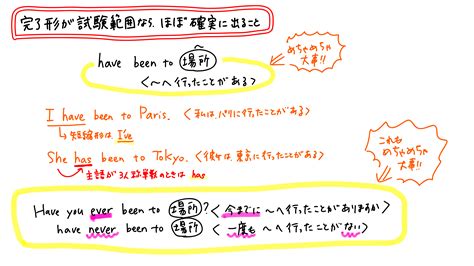 完了形が試験範囲なら、ほぼ確実に出ること
have been to 場所
<〜へ行ったことがある>
めちゃめちゃ
大事!!
I have been to Paris. <私はパリに行ったことがある>
短縮形は I've
She has been to Tokyo. <彼女は東京に行ったことがある>
主語が3人称単数のときは has
これも
めちゃめちゃ
大事!!
Have you ever been to 場所? <今までに 〜へ行ったことがありますか>
have never been to 場所 <一度も 〜へ行ったことがない>